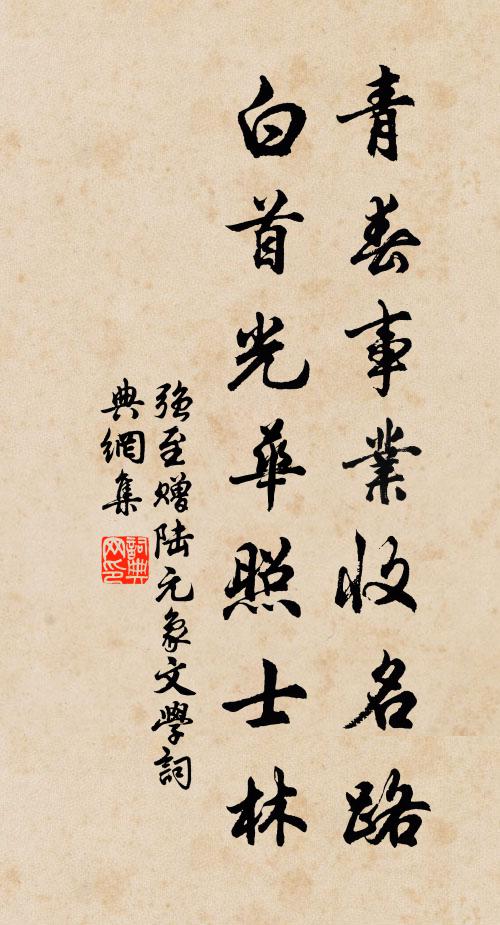 青春事業收名路
白首光華照士林
強至贈陆元象文學詞
典網集
詞典
网印